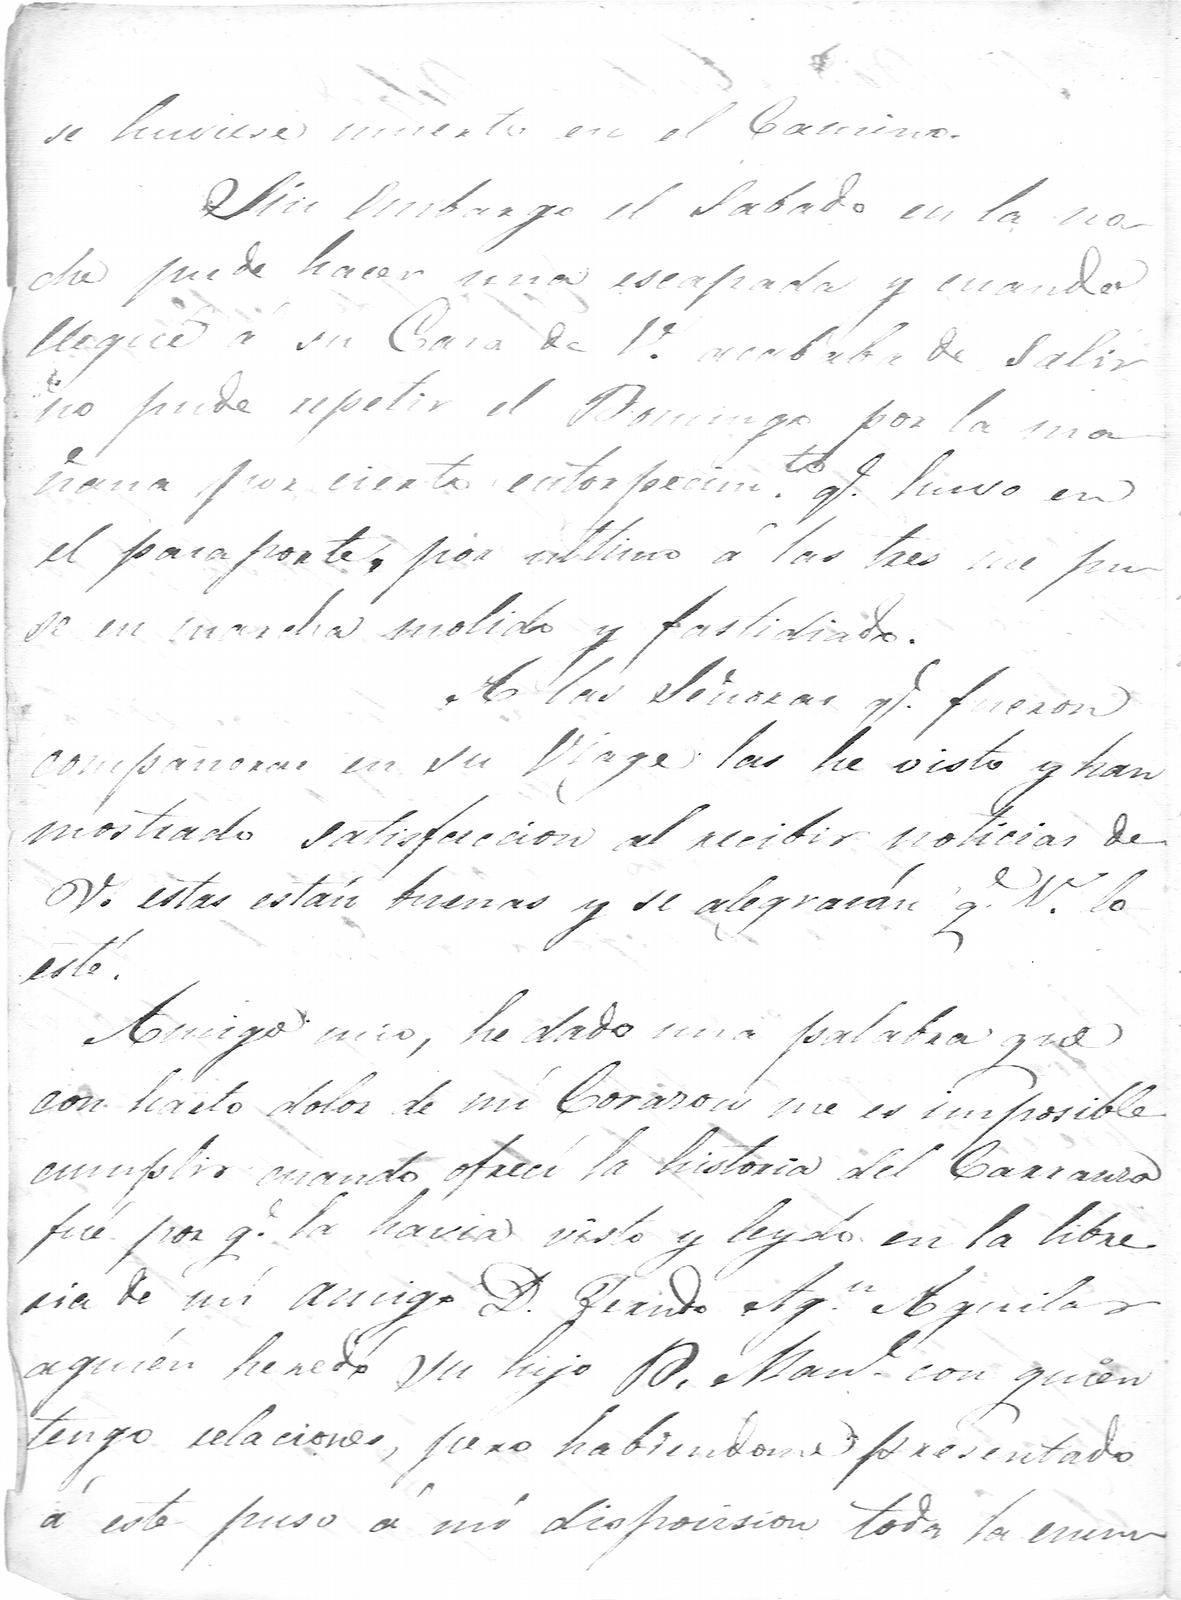 se huviese muerto en el Camino.
Sin embargo el Sabado en la no
che pude hacer una escapada y cuando
llegué á su Casa de V. acababa de Salir
no pude repetir el Domingo por la ma
ñana por cierto entorpecim.to q.e huvo en
el pasaporte, por ultimo á las tres me pu
se en marcha molido y fastidiado.
A las Señoras q.e fueron
compañeras en su Viage las he visto y han
mostrado satisfaccion al recibir noticias de
V. estas están buenas y se alegrarán q.e V. lo
esté.
Amigo mio, he dado una palabra que
con harto dolor de mi Corazon me es imposible
cumplir cuando ofrecí la historia del Carranza
fué por q.e la havia visto y leydo en la libre
ria de mi amigo D. Ferndo Ag.n Aguilar
aquién heredó su hijo D. Man.l con quien
tengo relaciones, pero habiendome presentado
á este puso á mi disposision toda la enum